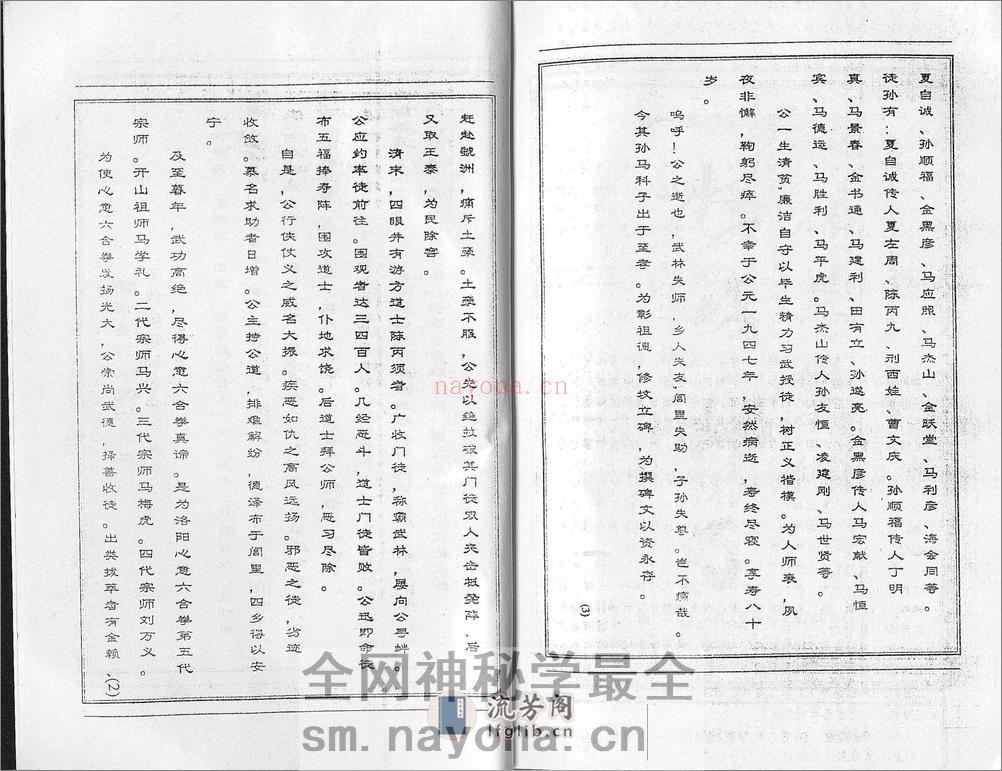 赶赴虢洲，痛斥土孬。土孬不服，公先以绝技破其门徒双人夹击抵凳阵，后
又取王泰，为民除害。
清末，四眼井有游方道士陈丙须者。广收门徒，称霸武林，屡向公寻衅。
公应约率徒前往。围观者达三四百人。几经恶斗，道士门徒皆败。公迅即命徒
布五福捧寿阵，围攻道士，仆地求饶。后道士拜公师，恶习尽除。
自是，公行侠仗义之威名大振。疾恶如仇之高风远扬。邪恶之徒，劣迹
收敛。慕名求助者日增。公主持公道，排难解纷，德泽布于闾里，四乡得以安
宁。
及至暮年，武功高绝，尽得心意六合拳真谛。是为洛阳心意六合拳第五代
宗师。开山祖师马学礼。二代宗师马兴。三代宗师马梅虎。四代宗师刘万义。
为使心意六合拳发扬光大，公崇尚武德，择善收徒。出类拔萃者有金赖、
(2)
夏自诚、孙顺福、金黑彦、马应照、马杰山、金跃堂、马利彦、海会同等。
徒孙有：夏自诚传人夏左周、陈丙九、刑西娃、曹文庆。孙顺福传人丁明
真、马景春、金书通、马建利、田有立、孙遂亮。金黑彦传人马宏献、马恒
宾、马德运、马胜利、马平虎。马杰山传人孙友恒、凌建刚、马世贤等。
公一生清贫，廉洁自守以毕生精力习武授徒，树正义楷模。为人师表，夙
夜非懈，鞠躬尽瘁。不幸于公元一九四七年，安然病逝，寿终尽寝。享寿八十
岁。
呜呼！公之逝也，武林失师，乡人失友，闾里失助，子孙失尊。岂不痛哉。
今其孙马科子出于至孝。为彰祖德，修坟立碑，为撰碑文以资永存。
(3)
nayona.cn
全网神秘学最全
流芳阁
lfglib.cn
sm.nayona.cn